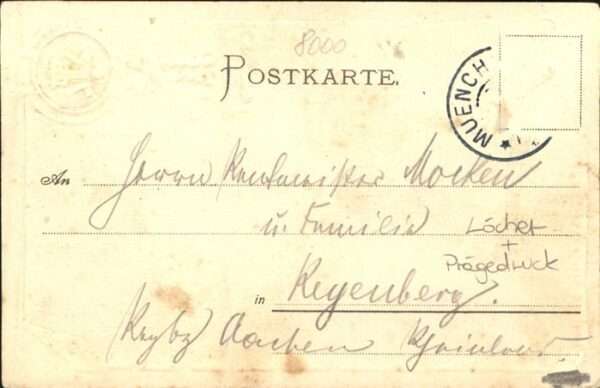 8000
POSTKARTE.
MUENCH
An Herrn Rentmeister Mocken
u. Familie
Löcher
+
Prägedruck
in Regenberg.
Regbz Aachen Rheinland.